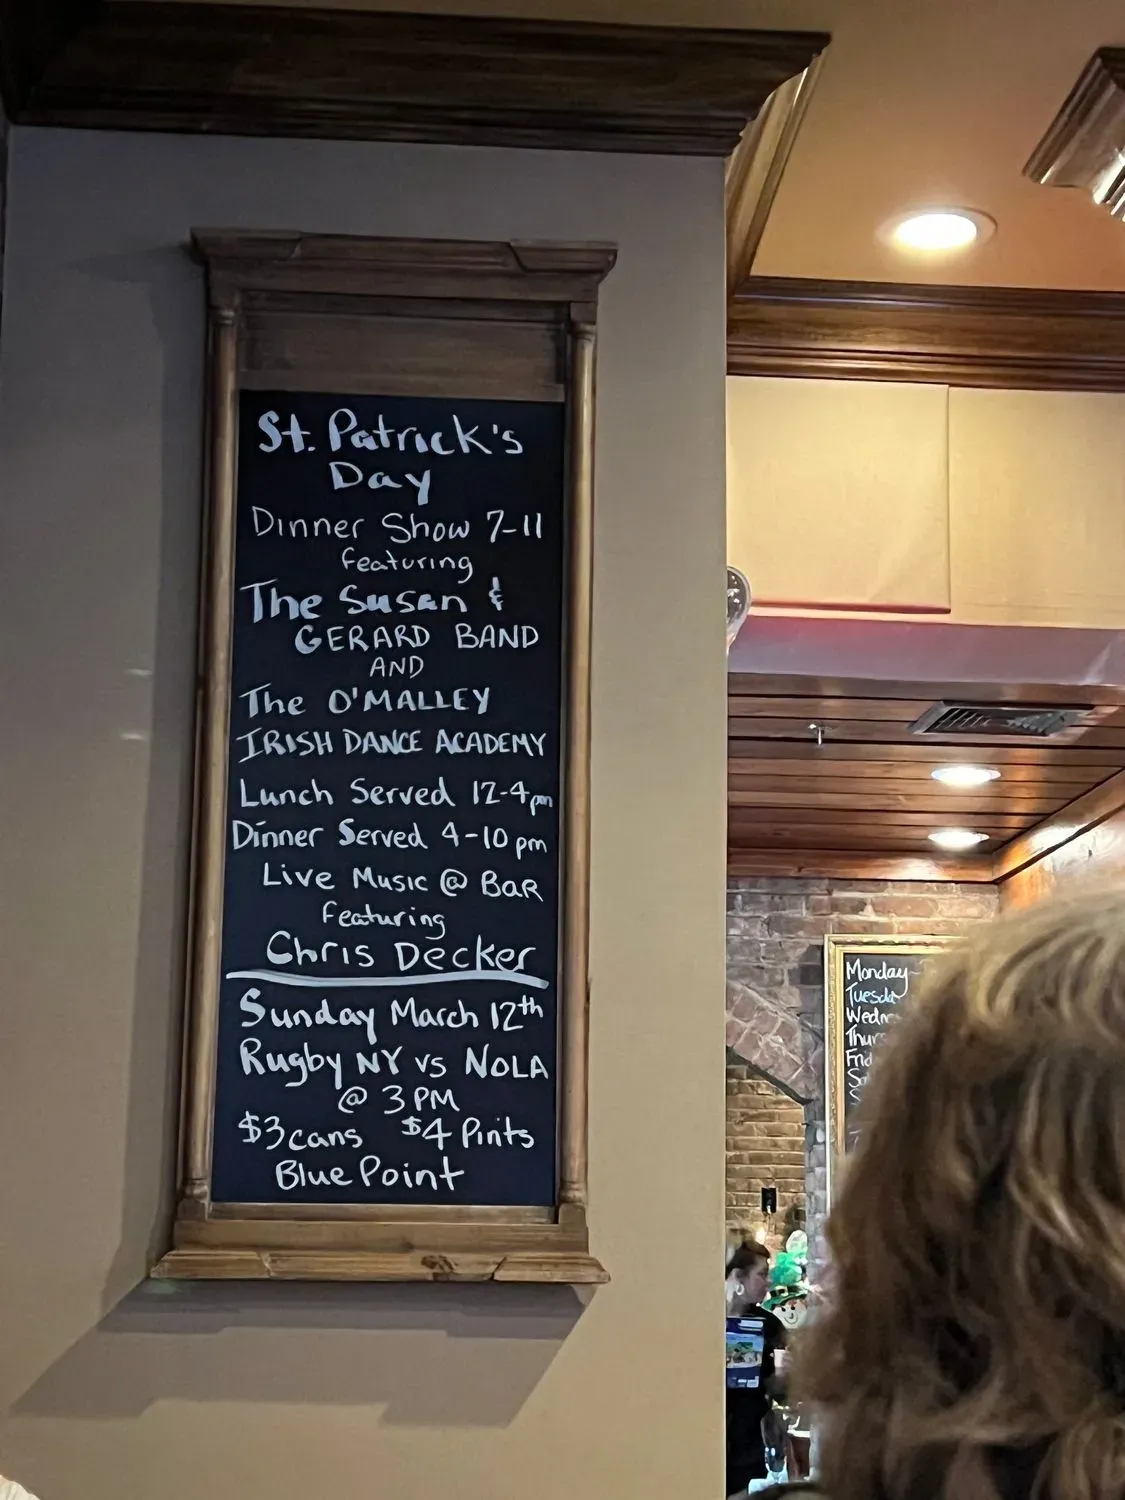 St. Patrick's
Day
Dinner Show 7-11
featuring
The Susan &
GERARD BAND
AND
The O'MALLEY
IRISH DANCE ACADEMY
Lunch Served 12-4pm
Dinner Served 4-10 pm
Live Music @ BAR
featuring
Chris Decker
Sunday March 12th
Rugby NY vs NOLA
@ 3 PM
$3 cans $4 Pints
Blue Point
Monday